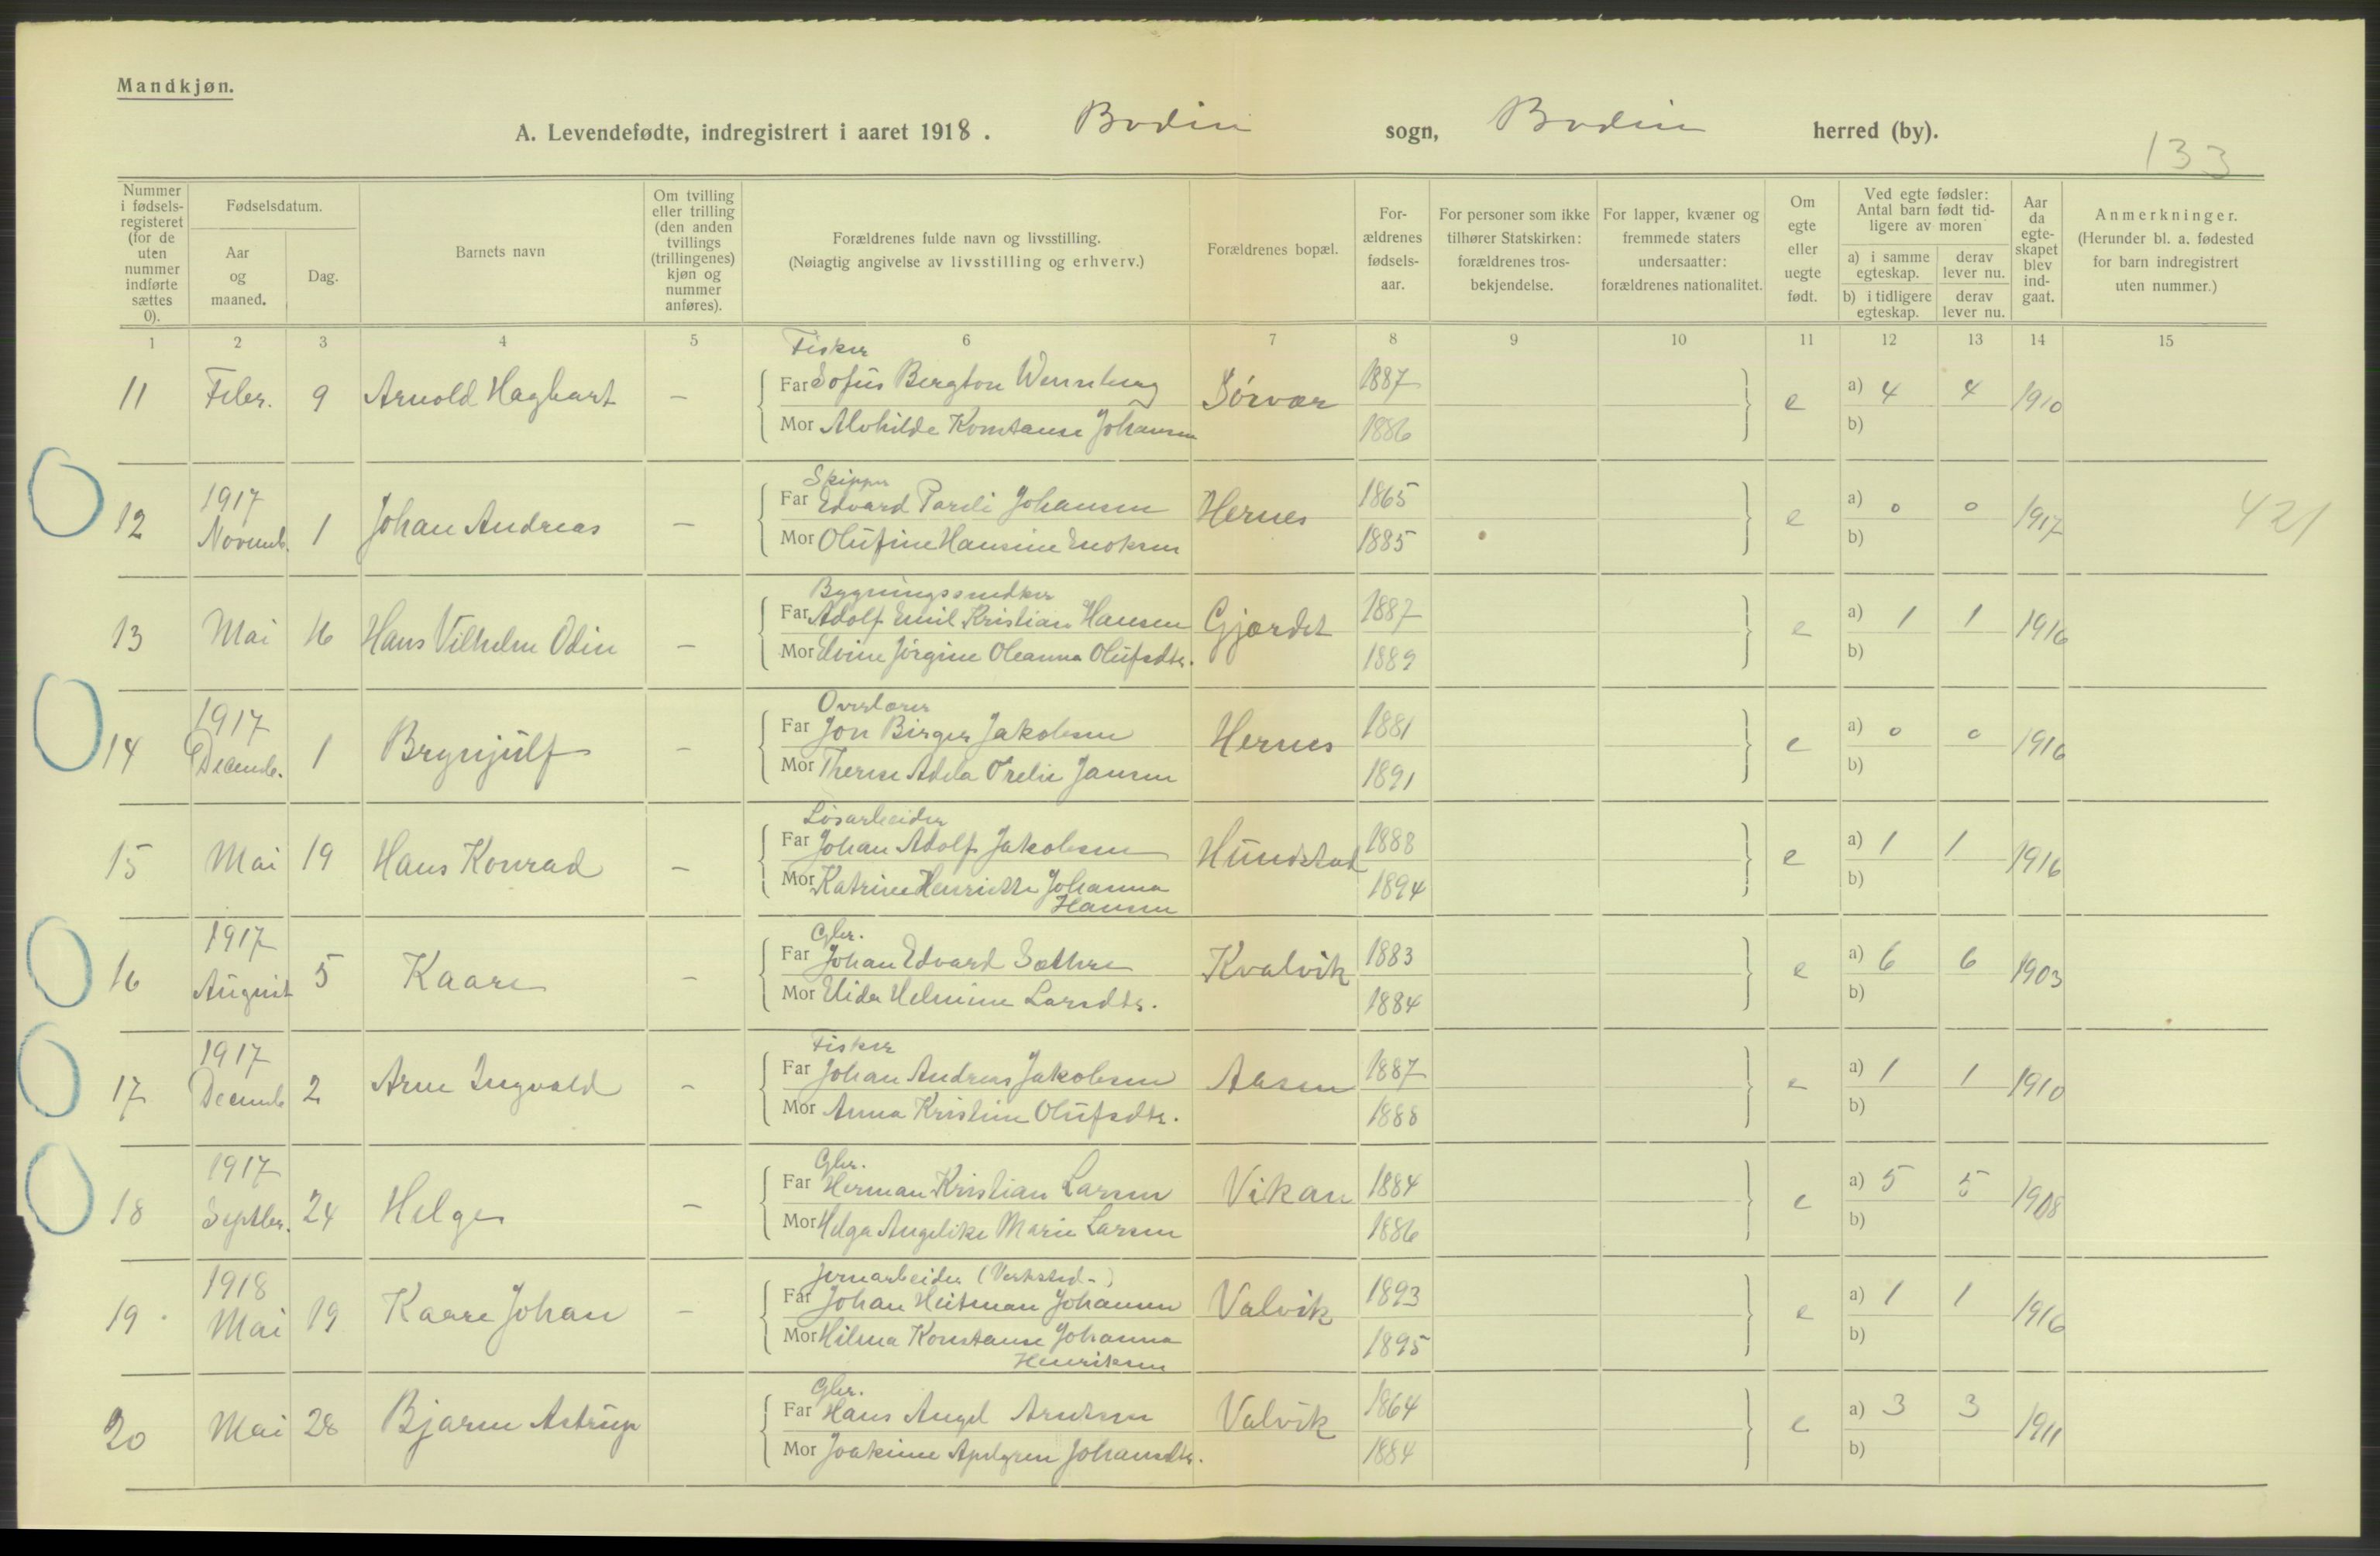 Mandkjøn.
A. Levendefødte, indregistrert i aaret 1918. Bodin sogn, Bodin herred (by).
133
Nummer i fødselsregisteret (for de uten nummer indførte sættes 0).
Fødselsdatum.
Aar og maaned.
Dag.
Barnets navn
Om tvilling eller trilling (den anden tvillings (trillingenes) kjøn og nummer anføres).
Forældrenes fulde navn og livsstilling.
(Nøiagtig angivelse av livsstilling og erhverv.)
Forældrenes bopæl.
For- ældrenes fødsels- aar.
For personer som ikke tilhører Statskirken: forældrenes tros- bekjendelse.
For lapper, kvæner og fremmede staters undersaatter: forældrenes nationalitet.
Om egte eller uegte født.
Ved egte fødsler: Antal barn født tid- ligere av moren
a) i samme egteskap.
derav lever nu.
b) i tidligere egteskap.
derav lever nu.
Aar da egte- skapet blev ind- gaat.
Anmerkninger.
(Herunder bl. a. fødested for barn indregistrert uten nummer.)
1 2 3 4 5 6 7 8 9 10 11 12 13 14 15
Fisker
11 Febr. 9 Arnold Hagbart – Far Sofus Bergton Wennberg Sørvær 1887 e a) 4 4 1910
Mor Alvhilde Konstanse Johansen 1886 b)
Skipper
12 1917 Novemb. 1 Johan Andreas – Far Edvard Pareli Johansen Hernes 1865 e a) 0 0 1917 421
Mor Olufine Hansine Enoksen 1885 b)
Bygningssnedker
13 Mai 16 Hans Vilhelm Odin – Far Adolf Emil Kristian Hansen Gjærdet 1887 e a) 1 1 1916
Mor Elvine Jørgine Oleanna Olufsdtr. 1889 b)
Overlærer
14 1917 Decemb. 1 Brynjulf – Far Jon Birger Jakobsen Hernes 1881 e a) 0 0 1916
Mor Therese Adela Orelie Jansen 1891 b)
Løsarbeider
15 Mai 19 Hans Konrad – Far Johan Adolf Jakobsen Hundstad 1888 e a) 1 1 1916
Mor Katrine Henriette Johanna Hansen 1894 b)
Gbr.
16 1917 August 5 Kaare – Far Johan Edvard Sæthre Kvalvik 1883 e a) 6 6 1903
Mor Elida Helmine Larsdtr. 1884 b)
Fisker
17 1917 Decemb 2 Arne Ingvald – Far Johan Andreas Jakobsen Aasen 1887 e a) 1 1 1910
Mor Anna Kristine Olufsdtr. 1888 b)
Gbr.
18 1917 Septbr. 24 Helge – Far Herman Kristian Larsen Vikan 1884 e a) 5 5 1908
Mor Helga Angelike Marie Larsen 1886 b)
Jernarbeider (Verksted-)
19 1918 Mai 19 Kaare Johan – Far Johan Heitman Johansen Valvik 1893 e a) 1 1 1916
Mor Hilma Konstanse Johanna Henriksen 1895 b)
Gbr.
20 Mai 28 Bjarne Astrup Far Hans Angel Arntsen Valvik 1864 e a) 3 3 1911
Mor Joakime Apelgren Johansdtr. 1884 b)